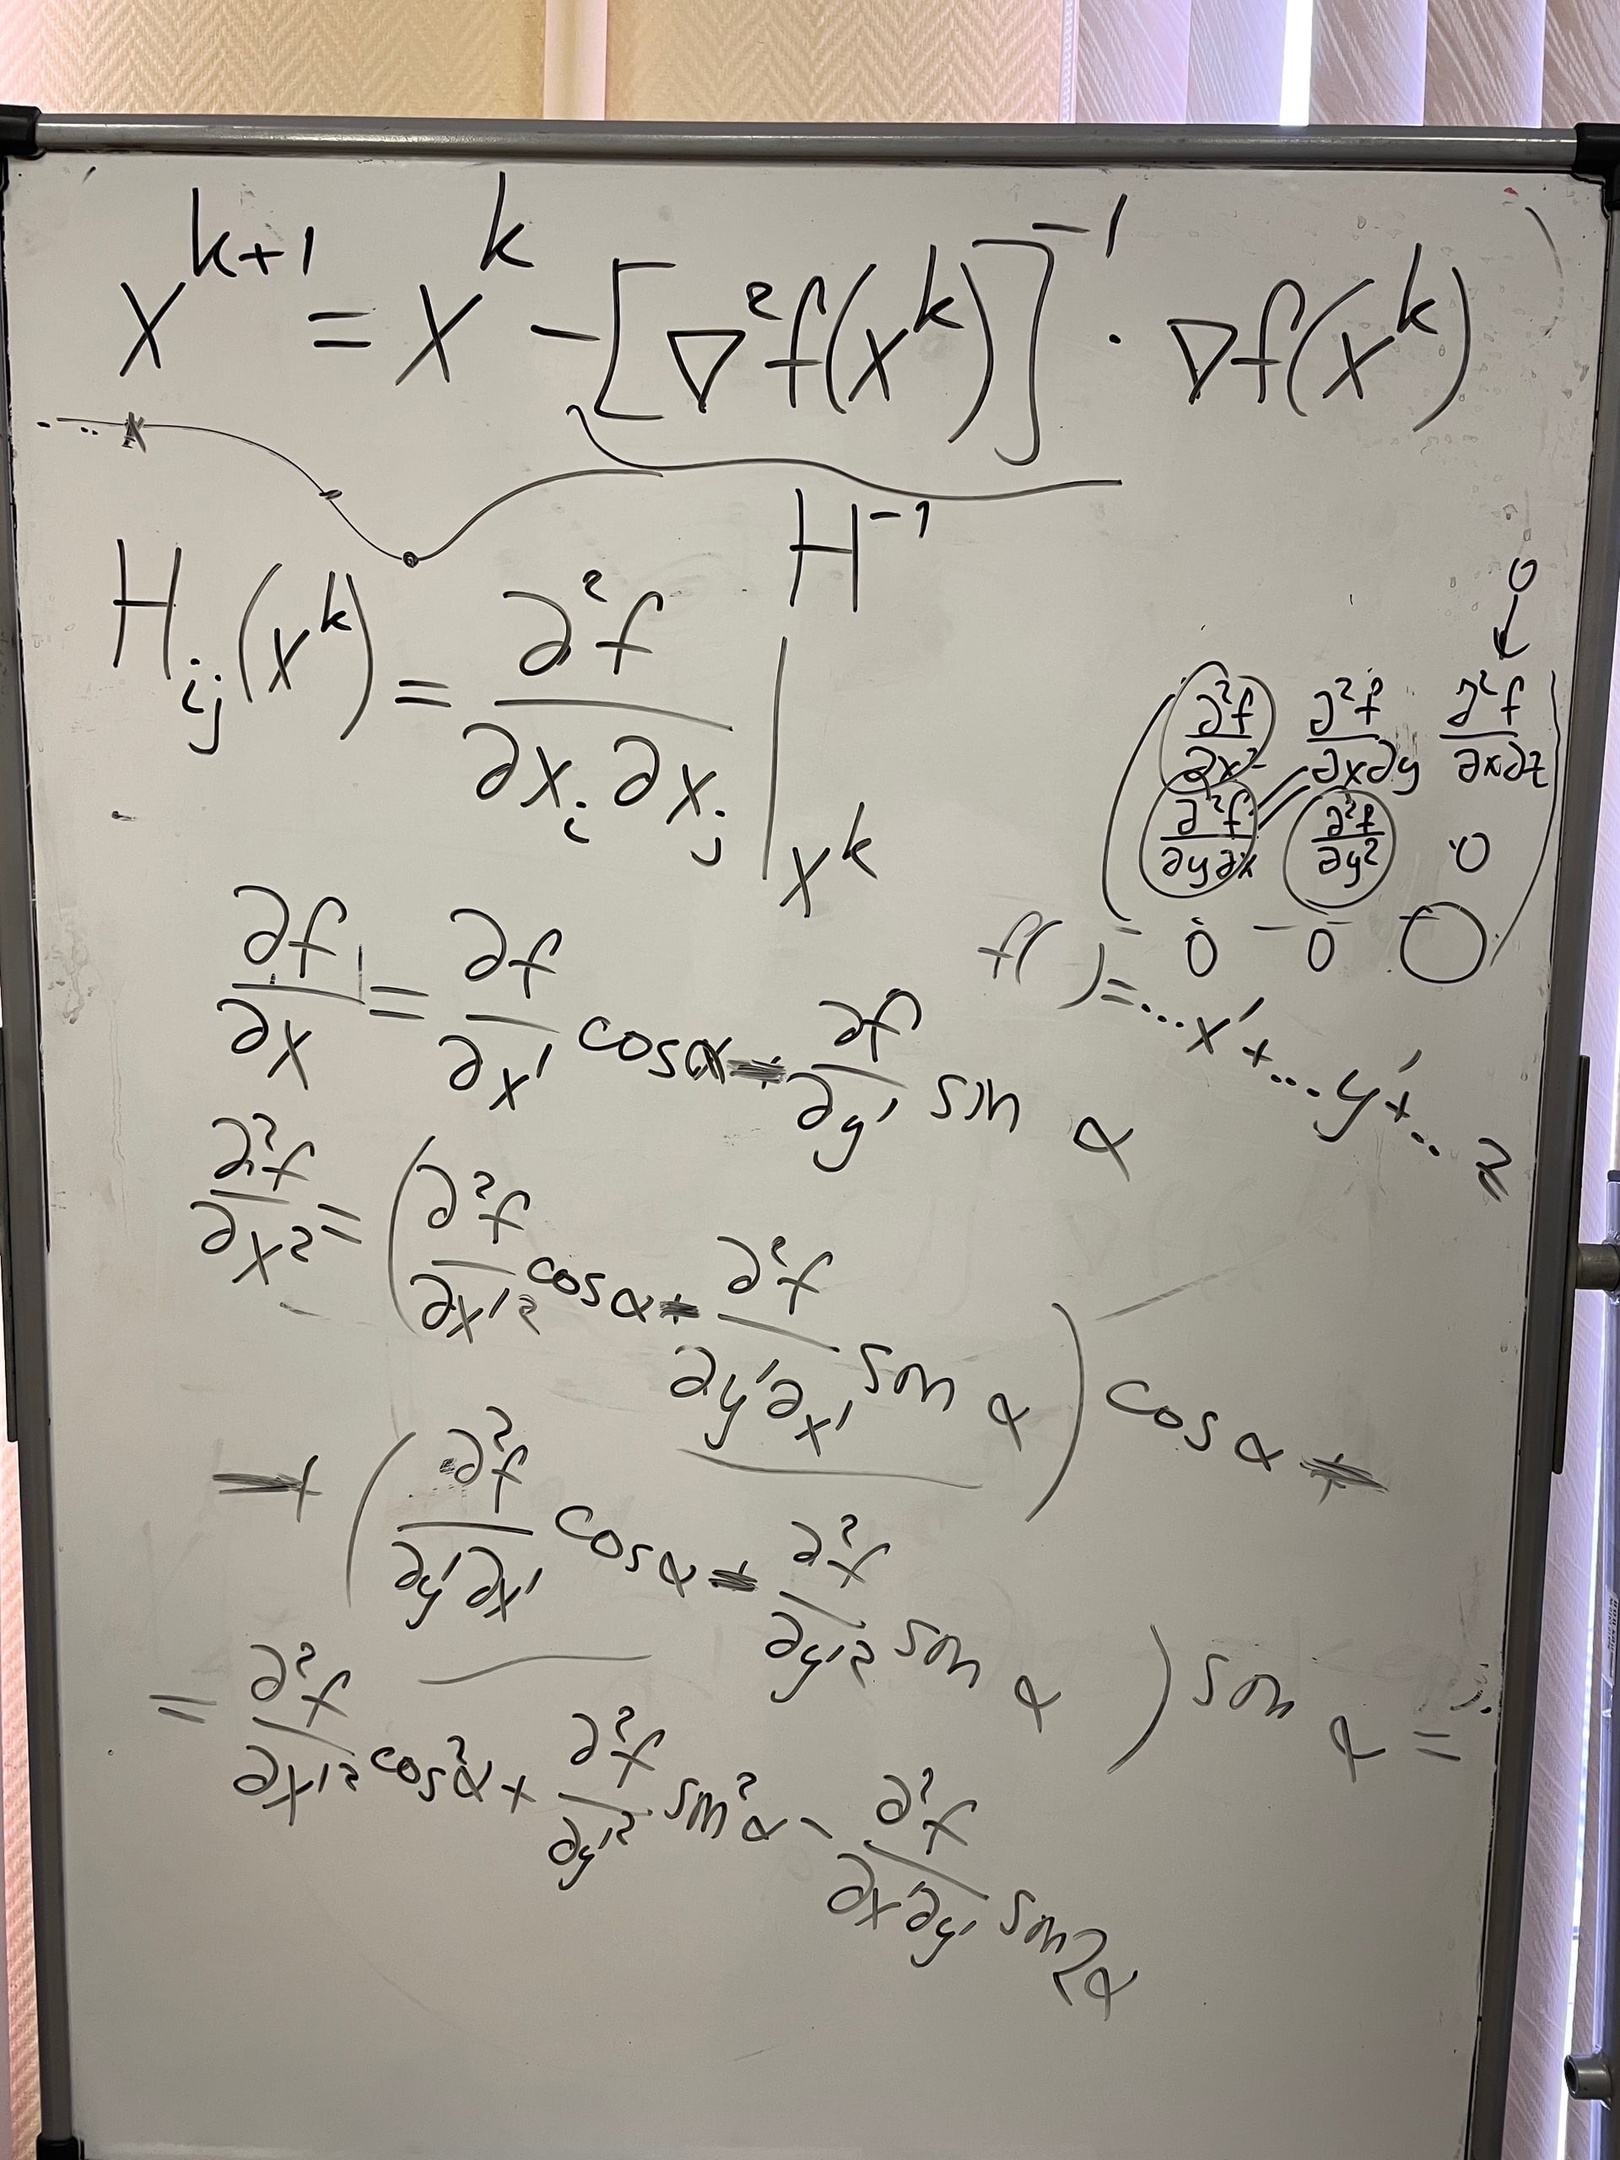 x^{k+1} = x^k - [∇²f(x^k)]^{-1} · ∇f(x^k)
H^{-1}
H_{ij}(x^k) = ∂²f / ∂x_i ∂x_j |_{x^k}
0
↓
∂²f/∂x² ∂²f/∂x∂y ∂²f/∂x∂z
∂²f/∂y∂x ∂²f/∂y² 0
0 0 0
f( ) = ...x' + ...y' + ... z
∂f/∂x = ∂f/∂x' cosα - ∂f/∂y' sin α
∂²f/∂x² = (∂²f/∂x'² cosα - ∂²f/∂y'∂x' sin α) cosα
(∂²f/∂y'∂x' cosα - ∂²f/∂y'² sin α) sin α =
= ∂²f/∂x'² cos²α + ∂²f/∂y'² sin²α - ∂²f/∂x'∂y' sin2α